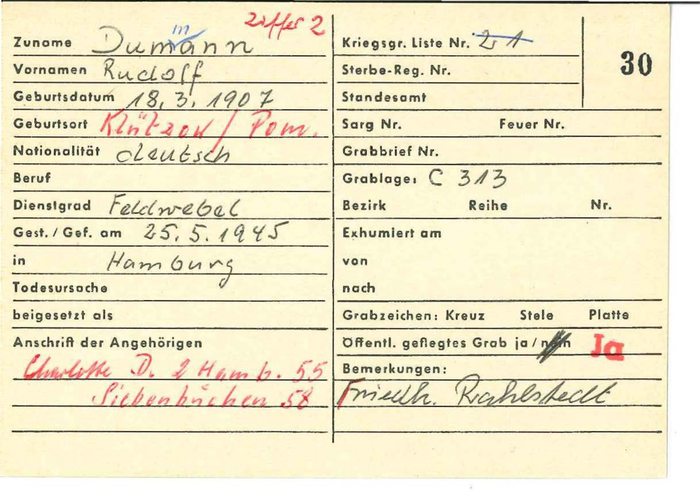 Ziffer 2
Zuname Dumann
m
Vornamen Rudolf
Geburtsdatum 18.3.1907
Geburtsort Klützow / Pom.
Nationalität deutsch
Beruf
Dienstgrad Feldwebel
Gest. / Gef. am 25.5.1945
in Hamburg
Todesursache
beigesetzt als
Anschrift der Angehörigen
Charlotte D. 2 Hamb. 55
Siebenbuchen 58
Kriegsgr. Liste Nr. 2 1
30
Sterbe-Reg. Nr.
Standesamt
Sarg Nr. Feuer Nr.
Grabbrief Nr.
Grablage: C 313
Bezirk Reihe Nr.
Exhumiert am
von
nach
Grabzeichen: Kreuz Stele Platte
Öffentl. gefiegtes Grab ja / nein Ja
Bemerkungen:
Friedh. Rahlstedt